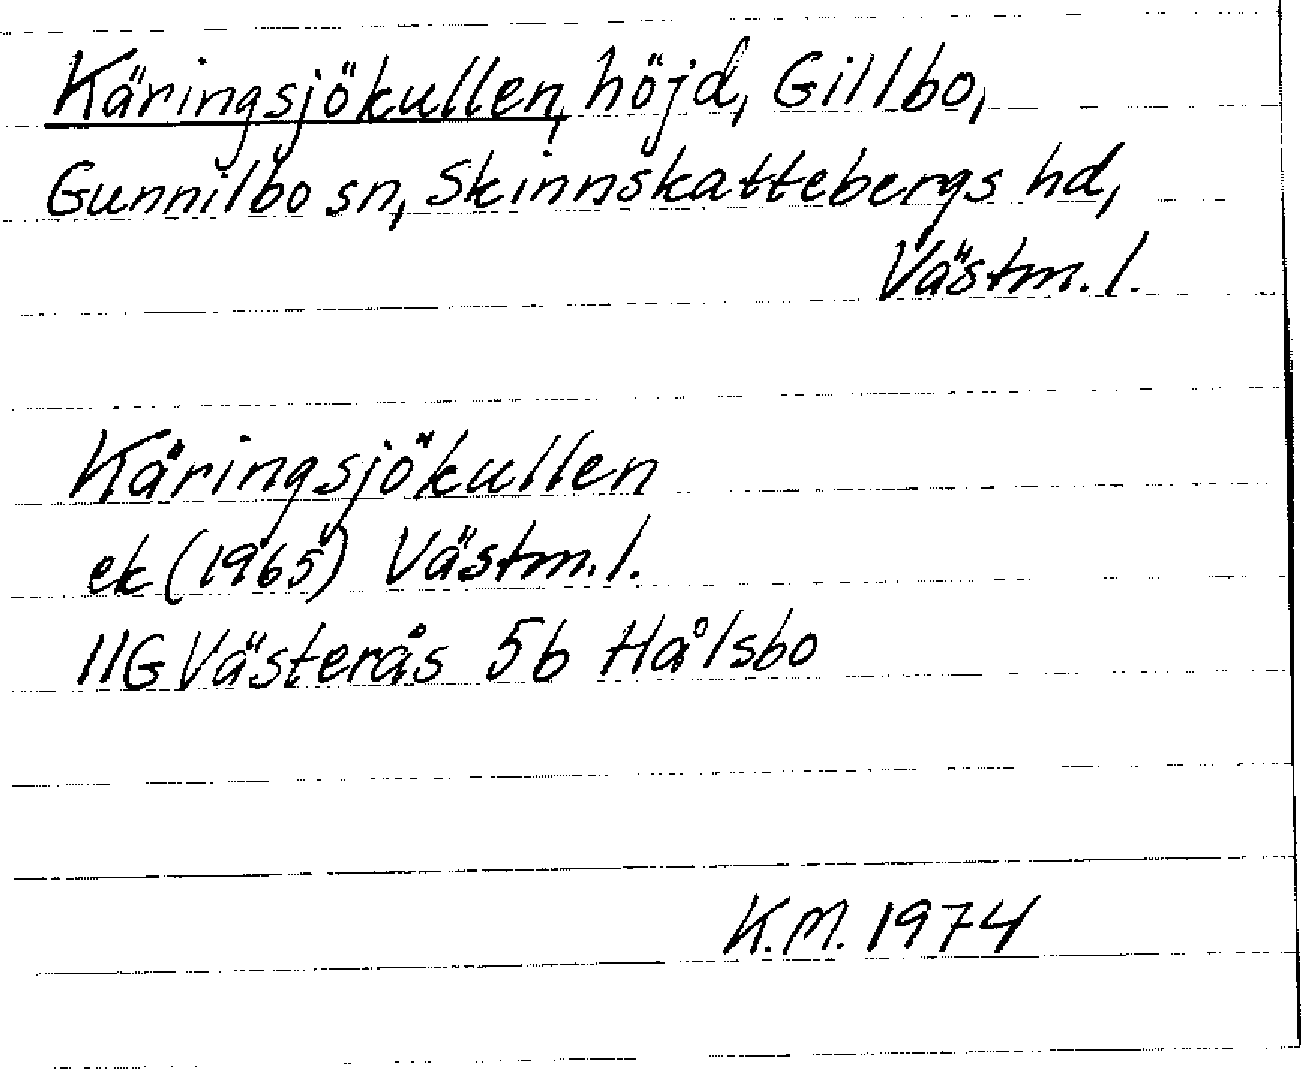 Käringsjökullen, höjd, Gillbo,
Gunnilbo sn, Skinnskattebergs hd,
Västm. l.
Käringsjökullen
ek (1965) Västm. l.
11G Västerås 5b Hålsbo
K.M. 1974